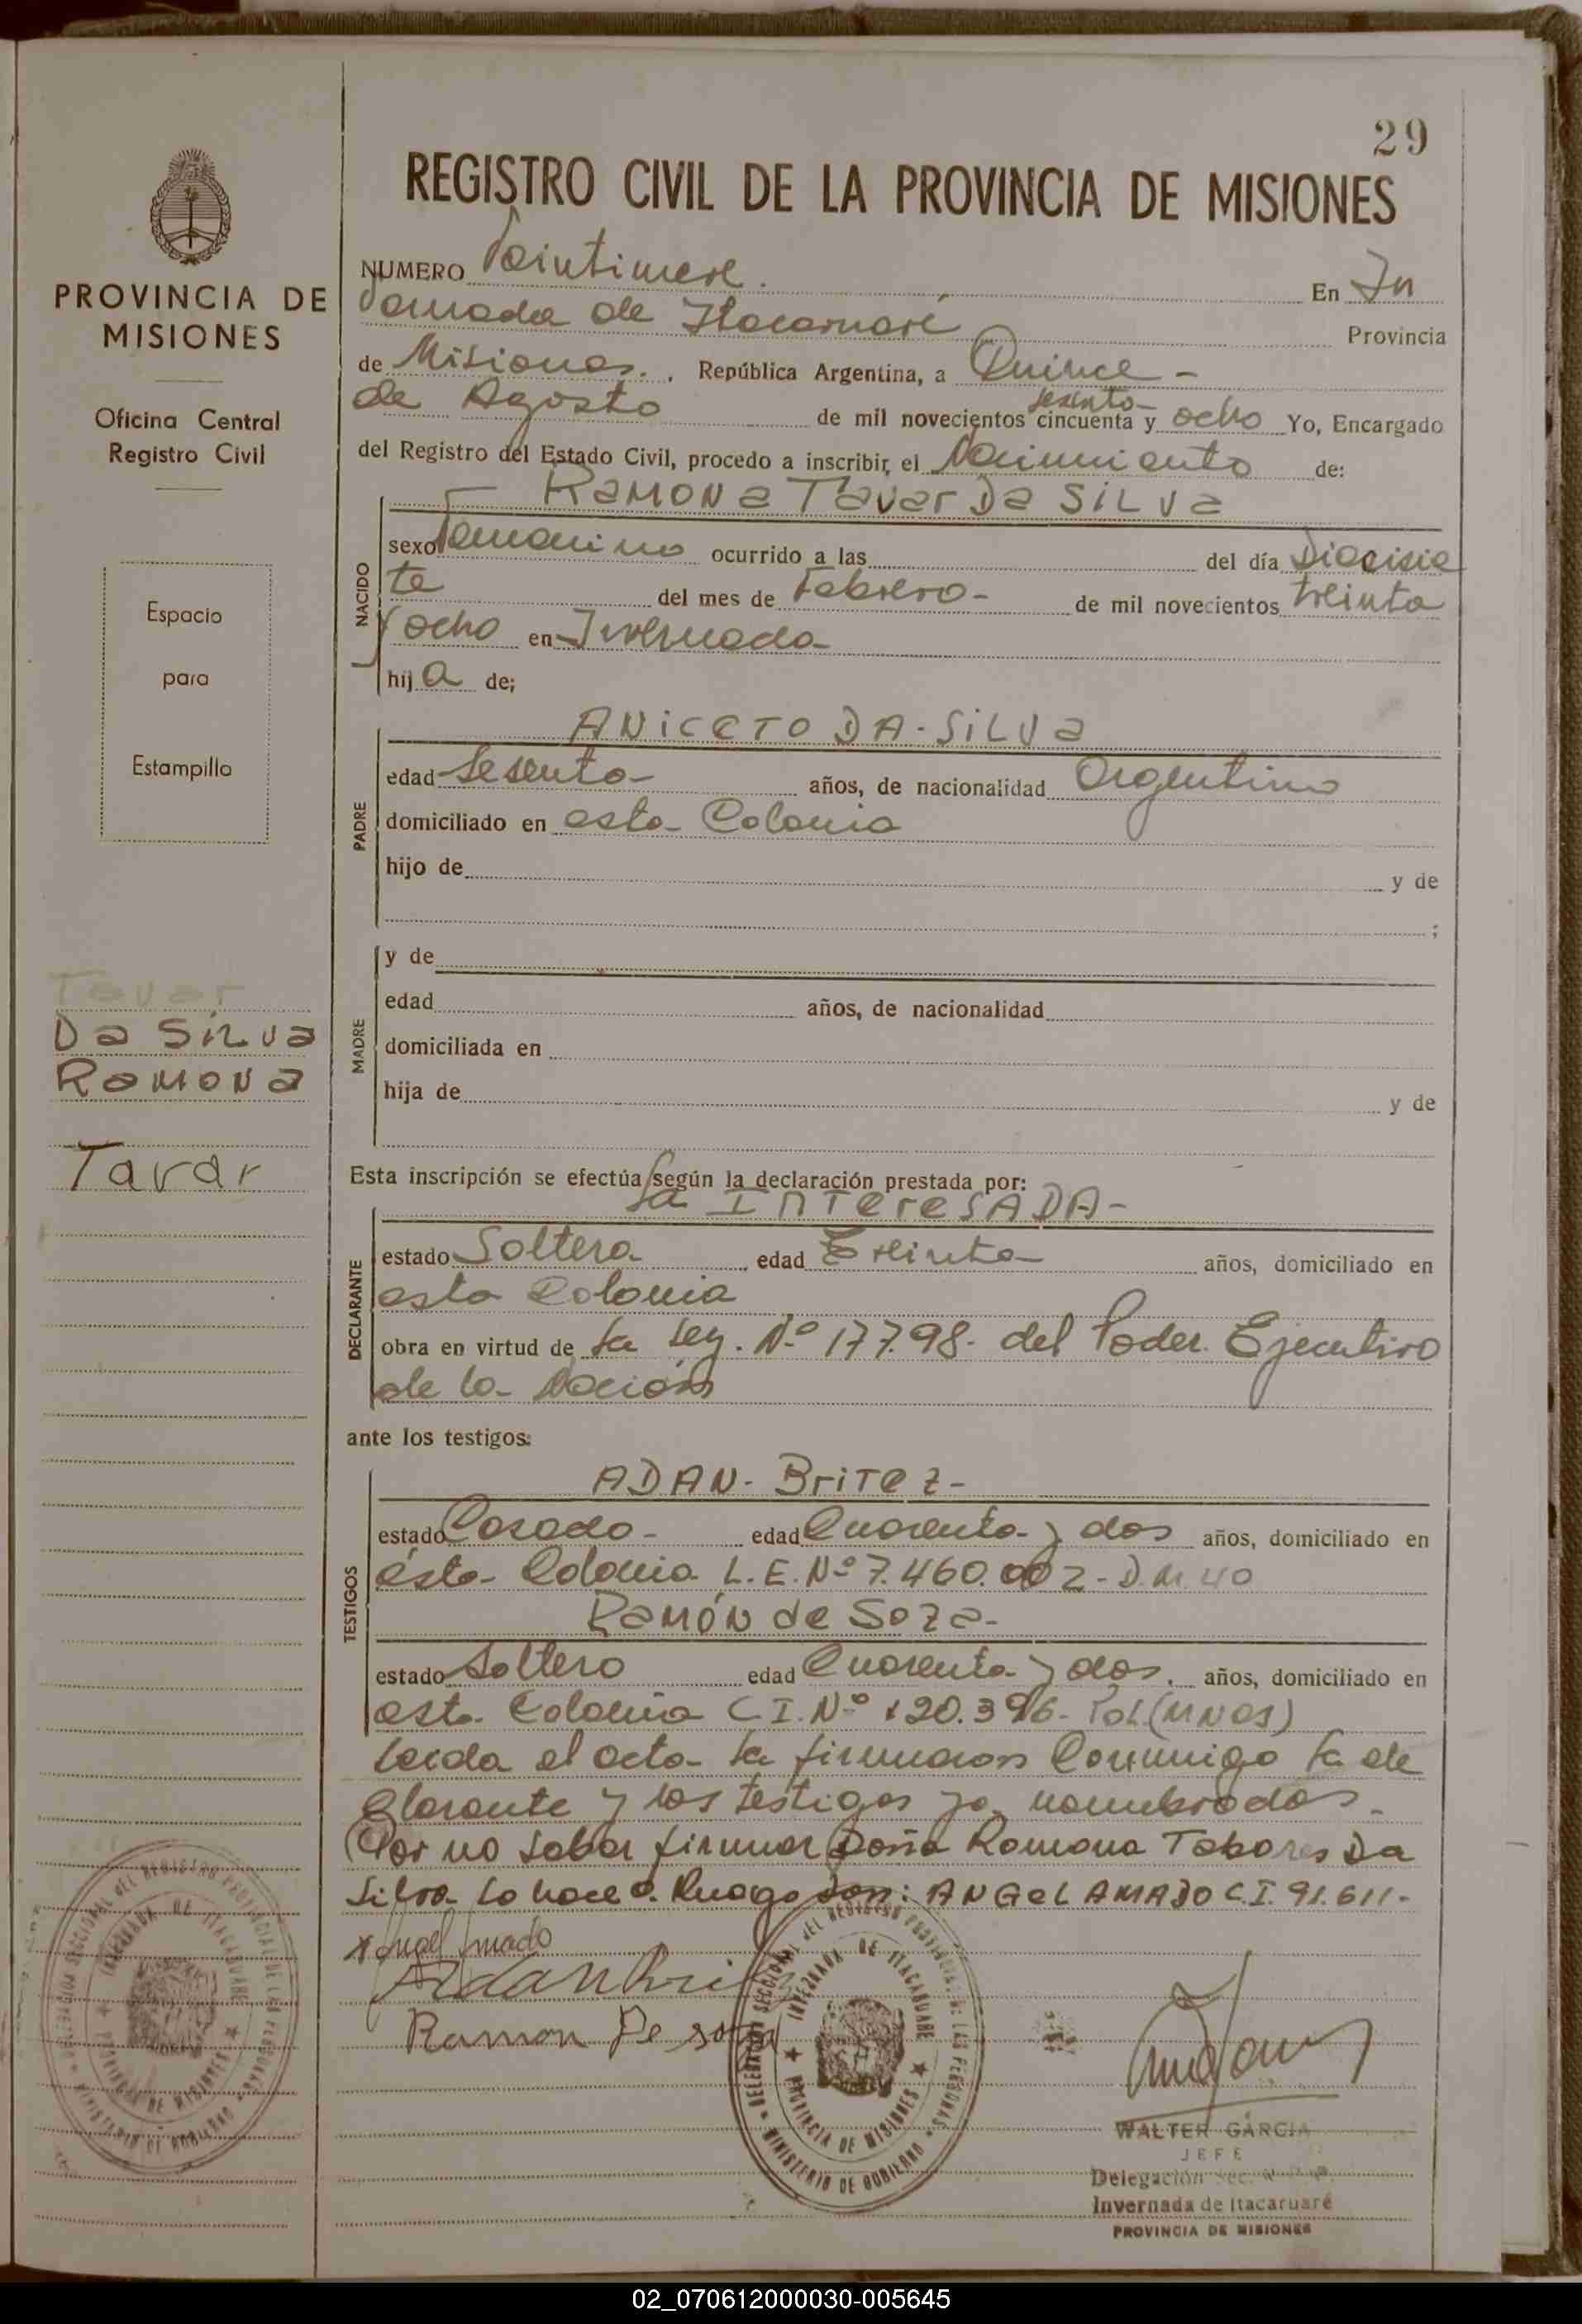 29
REGISTRO CIVIL DE LA PROVINCIA DE MISIONES
PROVINCIA DE
MISIONES
Oficina Central
Registro Civil
Espacio
para
Estampilla
Tavar
Da Silva
Ramona
Tavar
NUMERO Veintinueve. En In
vernada de Itacaruaré Provincia
de Misiones. , República Argentina, a Quince -
sesenta -
de Agosto de mil novecientos cincuenta y ocho Yo, Encargado
del Registro del Estado Civil, procedo a inscribir el Nacimiento de:
Ramona Tavar Da Silva
NACIDO
sexo Femenino ocurrido a las del día Diecisie
te del mes de Febrero - de mil novecientos treinta
y ocho en Invernada
hija de;
PADRE
ANiceTO DA-SiLVa
edad Sesenta - años, de nacionalidad Argentino
domiciliado en esta Colonia
hijo de y de
;
MADRE
y de
edad años, de nacionalidad
domiciliada en
hija de y de
Esta inscripción se efectúa según la declaración prestada por:
La InTeresADA -
DECLARANTE
estado Soltera edad Treinta - años, domiciliado en
esta Colonia
obra en virtud de La Ley. Nº 17798. del Poder Ejecutivo
de la Nación
ante los testigos:
TESTIGOS
ADAN - BriTez -
estado Casado - edad Cuarenta y dos años, domiciliado en
ésta Colonia L.E. Nº 7.460.002 - D.M. 40
Ramón de Soza -
estado Soltero edad Cuarenta y dos. años, domiciliado en
esta Colonia C.I. Nº 120.396 - Pol. (MNES)
Leida el acta la firmaron Conmigo la de
clarante y los testigos ya nombrados -
Por no saber firmar Doña Ramona Tabares Da
Silva lo hace a Ruego Don: ANGeL AMADO C.I. 91.611 -
x Angel Amado
Adan Britez
Ramon De soza
DELEGACION SECCIONAL DEL REGISTRO PROVINCIAL DE LAS PERSONAS
INVERNADA DE ITACARUARE
PROVINCIA DE MISIONES
MINISTERIO DE GOBIERNO
DELEGACION SECCIONAL DEL REGISTRO PROVINCIAL DE LAS PERSONAS
INVERNADA DE ITACARUARE
PROVINCIA DE MISIONES
MINISTERIO DE GOBIERNO
WALTER GARCIA
JEFE
Delegación Sec.
Invernada de Itacaruaré
PROVINCIA DE MISIONES
02_070612000030-005645